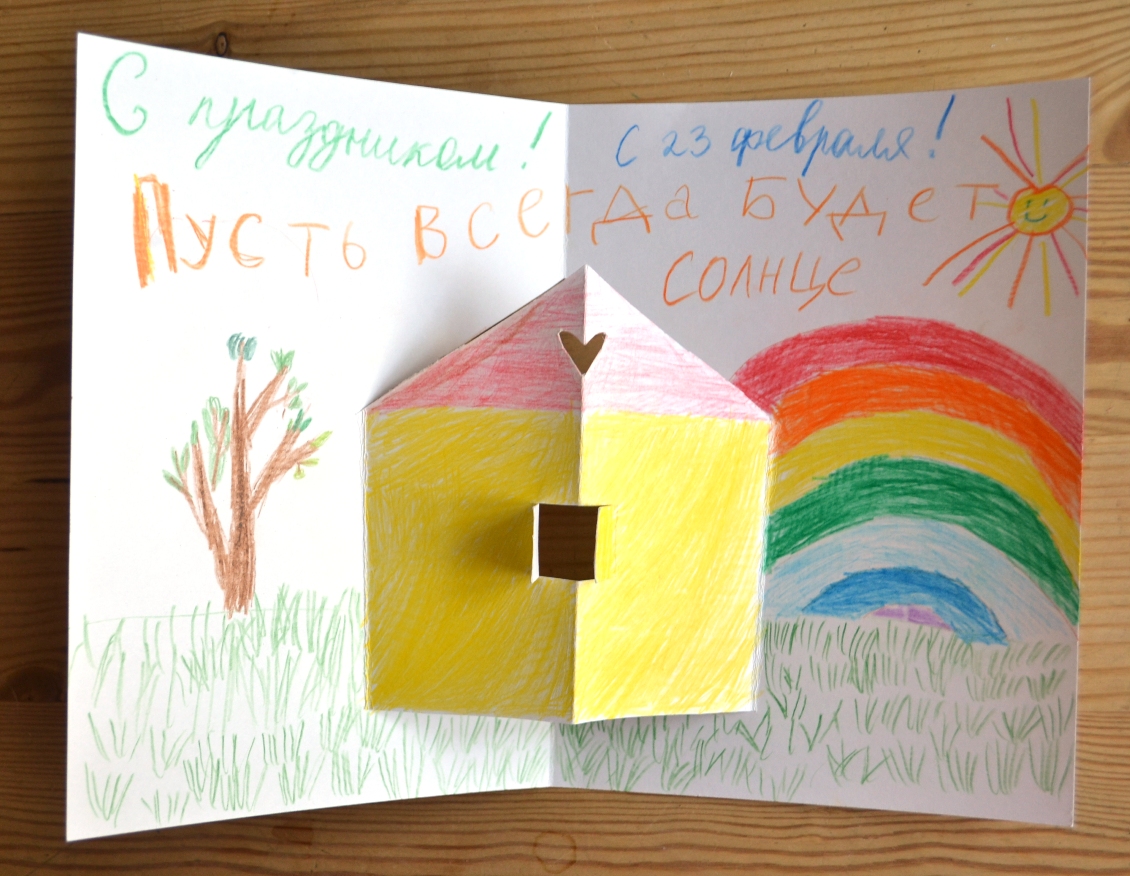 С праздником!
с 23 февраля!
Пусть всегда будет
солнце